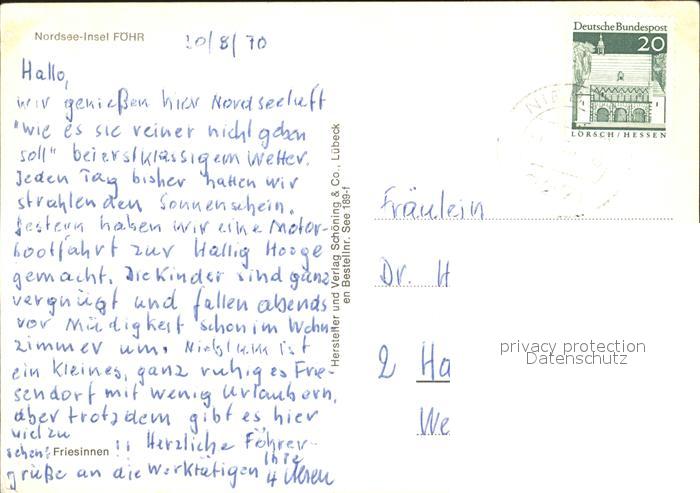 Nordsee-Insel FÖHR
20/8/70
Hallo,
wir genießen hier Nordseeluft
"wie es sie reiner nicht geben
soll" bei erstklassigem Wetter.
Jeden Tag bisher hatten wir
strahlenden Sonnenschein.
Gestern haben wir eine Motor-
bootfahrt zur Hallig Hooge
gemacht. Die Kinder sind ganz
vergnügt und fallen abends
vor Müdigkeit schon im Wohn-
zimmer um. Nieblum ist
ein kleines, ganz ruhiges Frie-
sendorf mit wenig Urlaubern,
aber trotzdem gibt es hier
viel zu
sehen!
Friesinnen
!! Herzliche Föhrer-
grüße an die Werktätigen Ihre
Hersteller und Verlag Schöning & Co., Lübeck
en Bestellnr. See 189-f
Deutsche Bundespost
20
LORSCH/HESSEN
NIE
Fräulein
Dr. H
2 Ha
We
privacy protection
Datenschutz